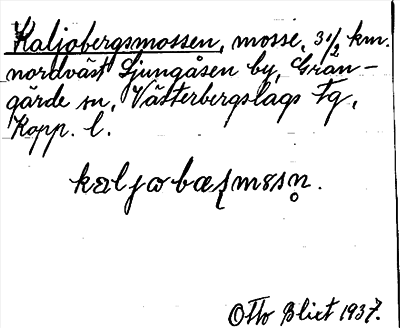 Kaljobergsmossen, mosse, 3 1/2 km.
nordväst Ljungåsen by, Gran-
gärde sn, Västerbergslags tg,
Kopp. l.
kaljobæʃmɵsn̥.
Otto Blixt 1937.